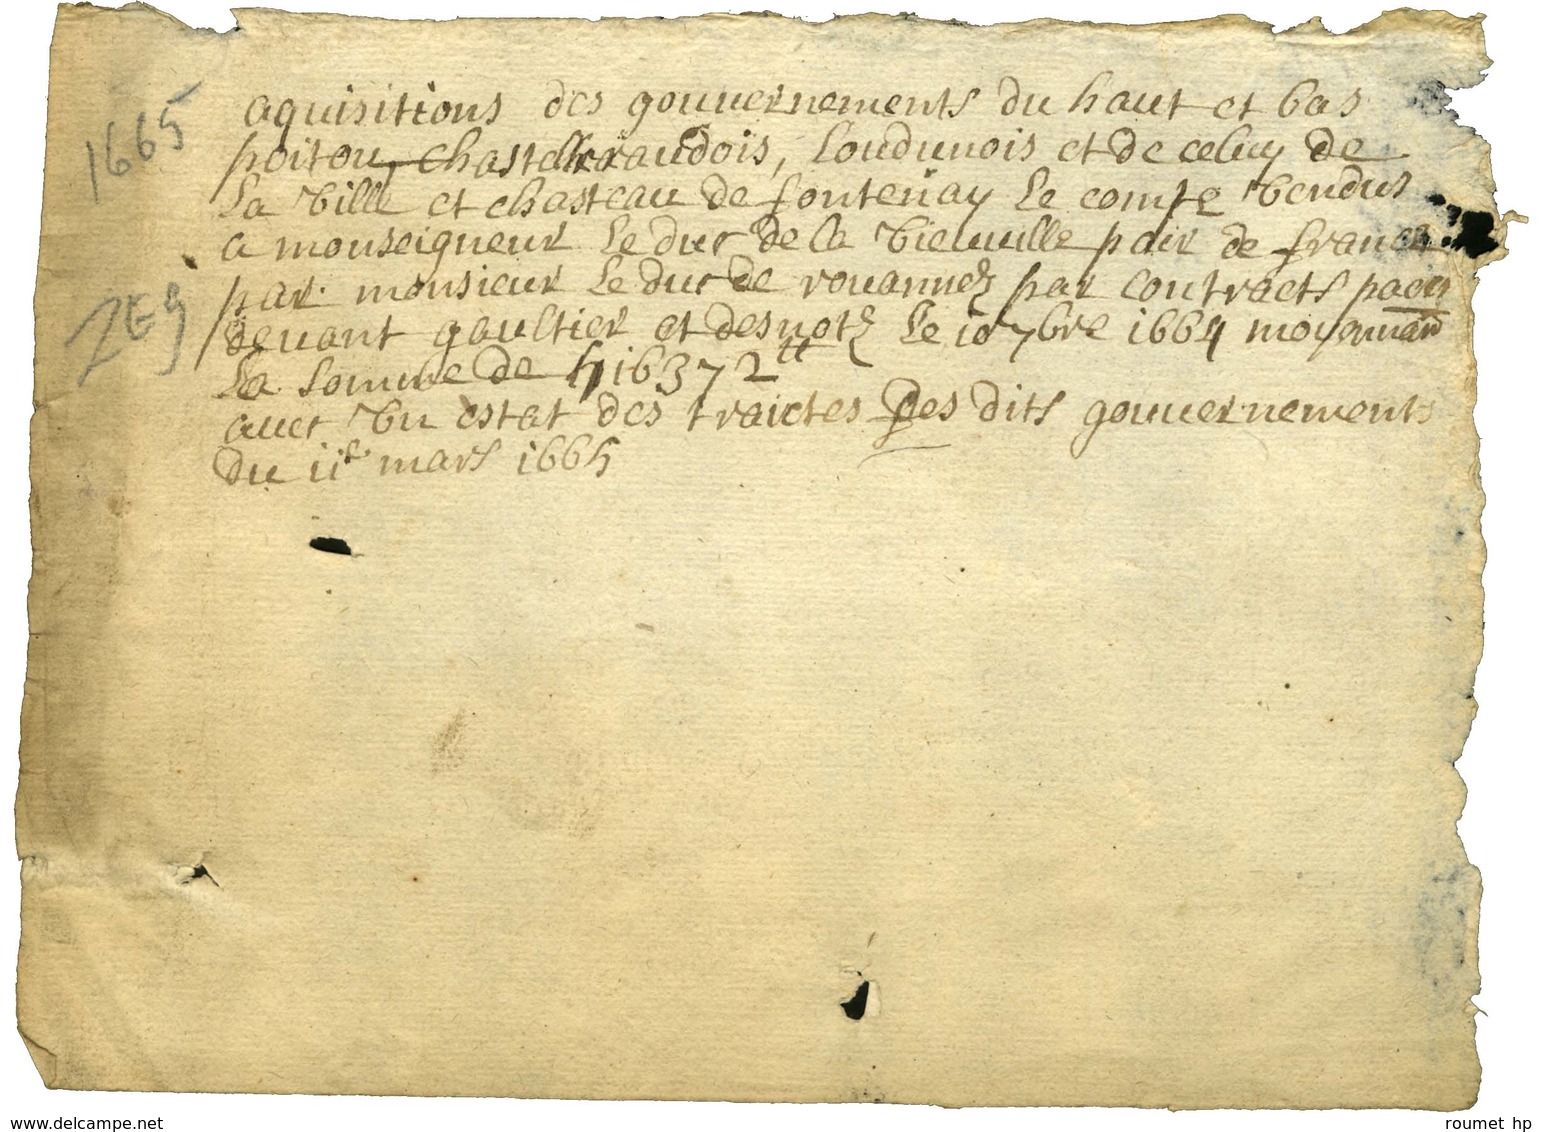 1665
aquisitions des gouuernements du haut et bas
poitou, chastelleraudois, Loudunois et de celuy de
La Ville et chasteau de fontenay Le comte Vendus
a monseigneur Le duc de la Vieuuille pair de france
par monsieur Le duc de rouannez par contracts
249
deuant gaultier et desnotz Le 10 7bre 1664 moyennant
La somme de 516372 tt
auec Vn estat des traictes des dits gouuernements
du 11e mars 1665
www.delcampe.net
roumet hp